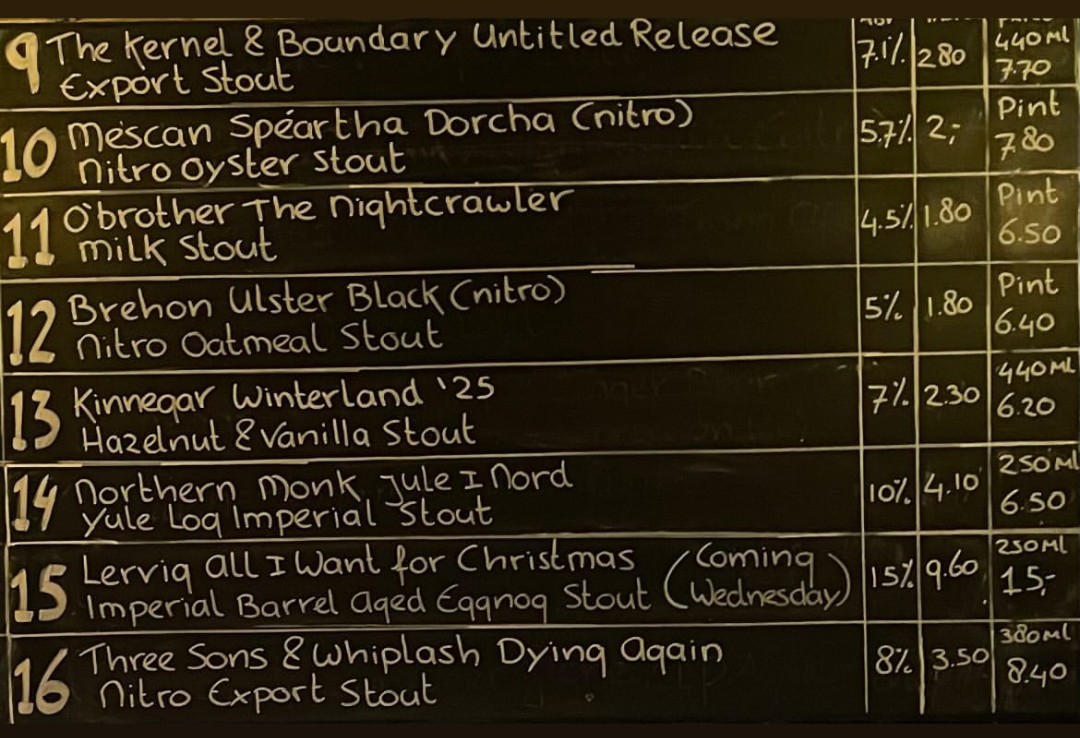 9 The Kernel & Boundary Untitled Release 7.1% 2.80 440ml
Export Stout 7.70
10 Mescan Spéartha Dorcha (nitro) 5.7% 2,- Pint
Nitro Oyster Stout 7.80
11 O'brother The Nightcrawler 4.5% 1.80 Pint
Milk Stout 6.50
12 Brehon Ulster Black (nitro) 5% 1.80 Pint
Nitro Oatmeal Stout 6.40
13 Kinnegar Winterland '25 7% 2.30 440ml
Hazelnut & Vanilla Stout 6.20
14 Northern Monk Jule I Nord 10% 4.10 250ml
Yule Log Imperial Stout 6.50
15 Lervig All I Want for Christmas (Coming 15% 9.60 250ml
Imperial Barrel Aged Eggnog Stout Wednesday) 15,-
16 Three Sons & Whiplash Dying Again 8% 3.50 380ml
Nitro Export Stout 8.40